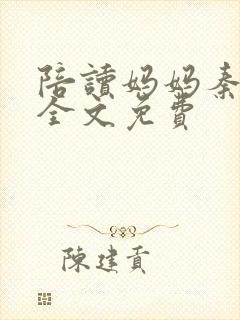 陪讀媽媽秦
全文免費
陳建貢